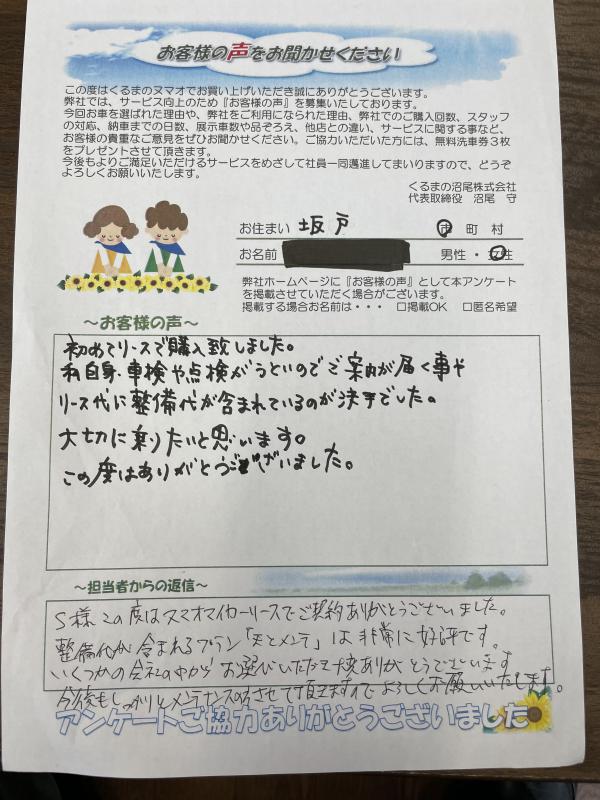 お客様の声をお聞かせください
この度はくるまのヌマオでお買い上げいただき誠にありがとうございます。
弊社では、サービス向上のため『お客様の声』を募集いたしております。
今回お車を選ばれた理由や、弊社をご利用になられた理由、弊社でのご購入回数、スタッフ
の対応、納車までの日数、展示車数や品ぞろえ、他店との違い、サービスに関する事など、
お客様の貴重なご意見をぜひお聞かせください。ご協力いただいた方には、無料洗車券3枚
をプレゼントさせて頂きます。
今後もよりご満足いただけるサービスをめざして社員一同邁進してまいりますので、どうぞ
よろしくお願いいたします。
くるまの沼尾株式会社
代表取締役 沼尾 守
お住まい 坂戸 市 町 村
お名前 男性・女性
弊社ホームページに『お客様の声』として本アンケート
を掲載させていただく場合がございます。
掲載する場合お名前は・・・ □掲載OK □匿名希望
～お客様の声～
初めてリースで購入致しました。
私自身、車検や点検がうといのでご案内が届く事や
リース代に整備代が含まれているのが決手でした。
大切に乗りたいと思います。
この度はありがとうございました。
～担当者からの返信～
S様この度はヌマオマイカーリースでご契約ありがとうございました。
整備代が含まれるプラン「天とメンテ」は非常に好評です。
いくつかの会社の中からお選びいただき大変ありがとうございます
今後もしっかりとメンテナンスの方させて頂きますのでよろしくお願いいたします。
アンケートご協力ありがとうございました